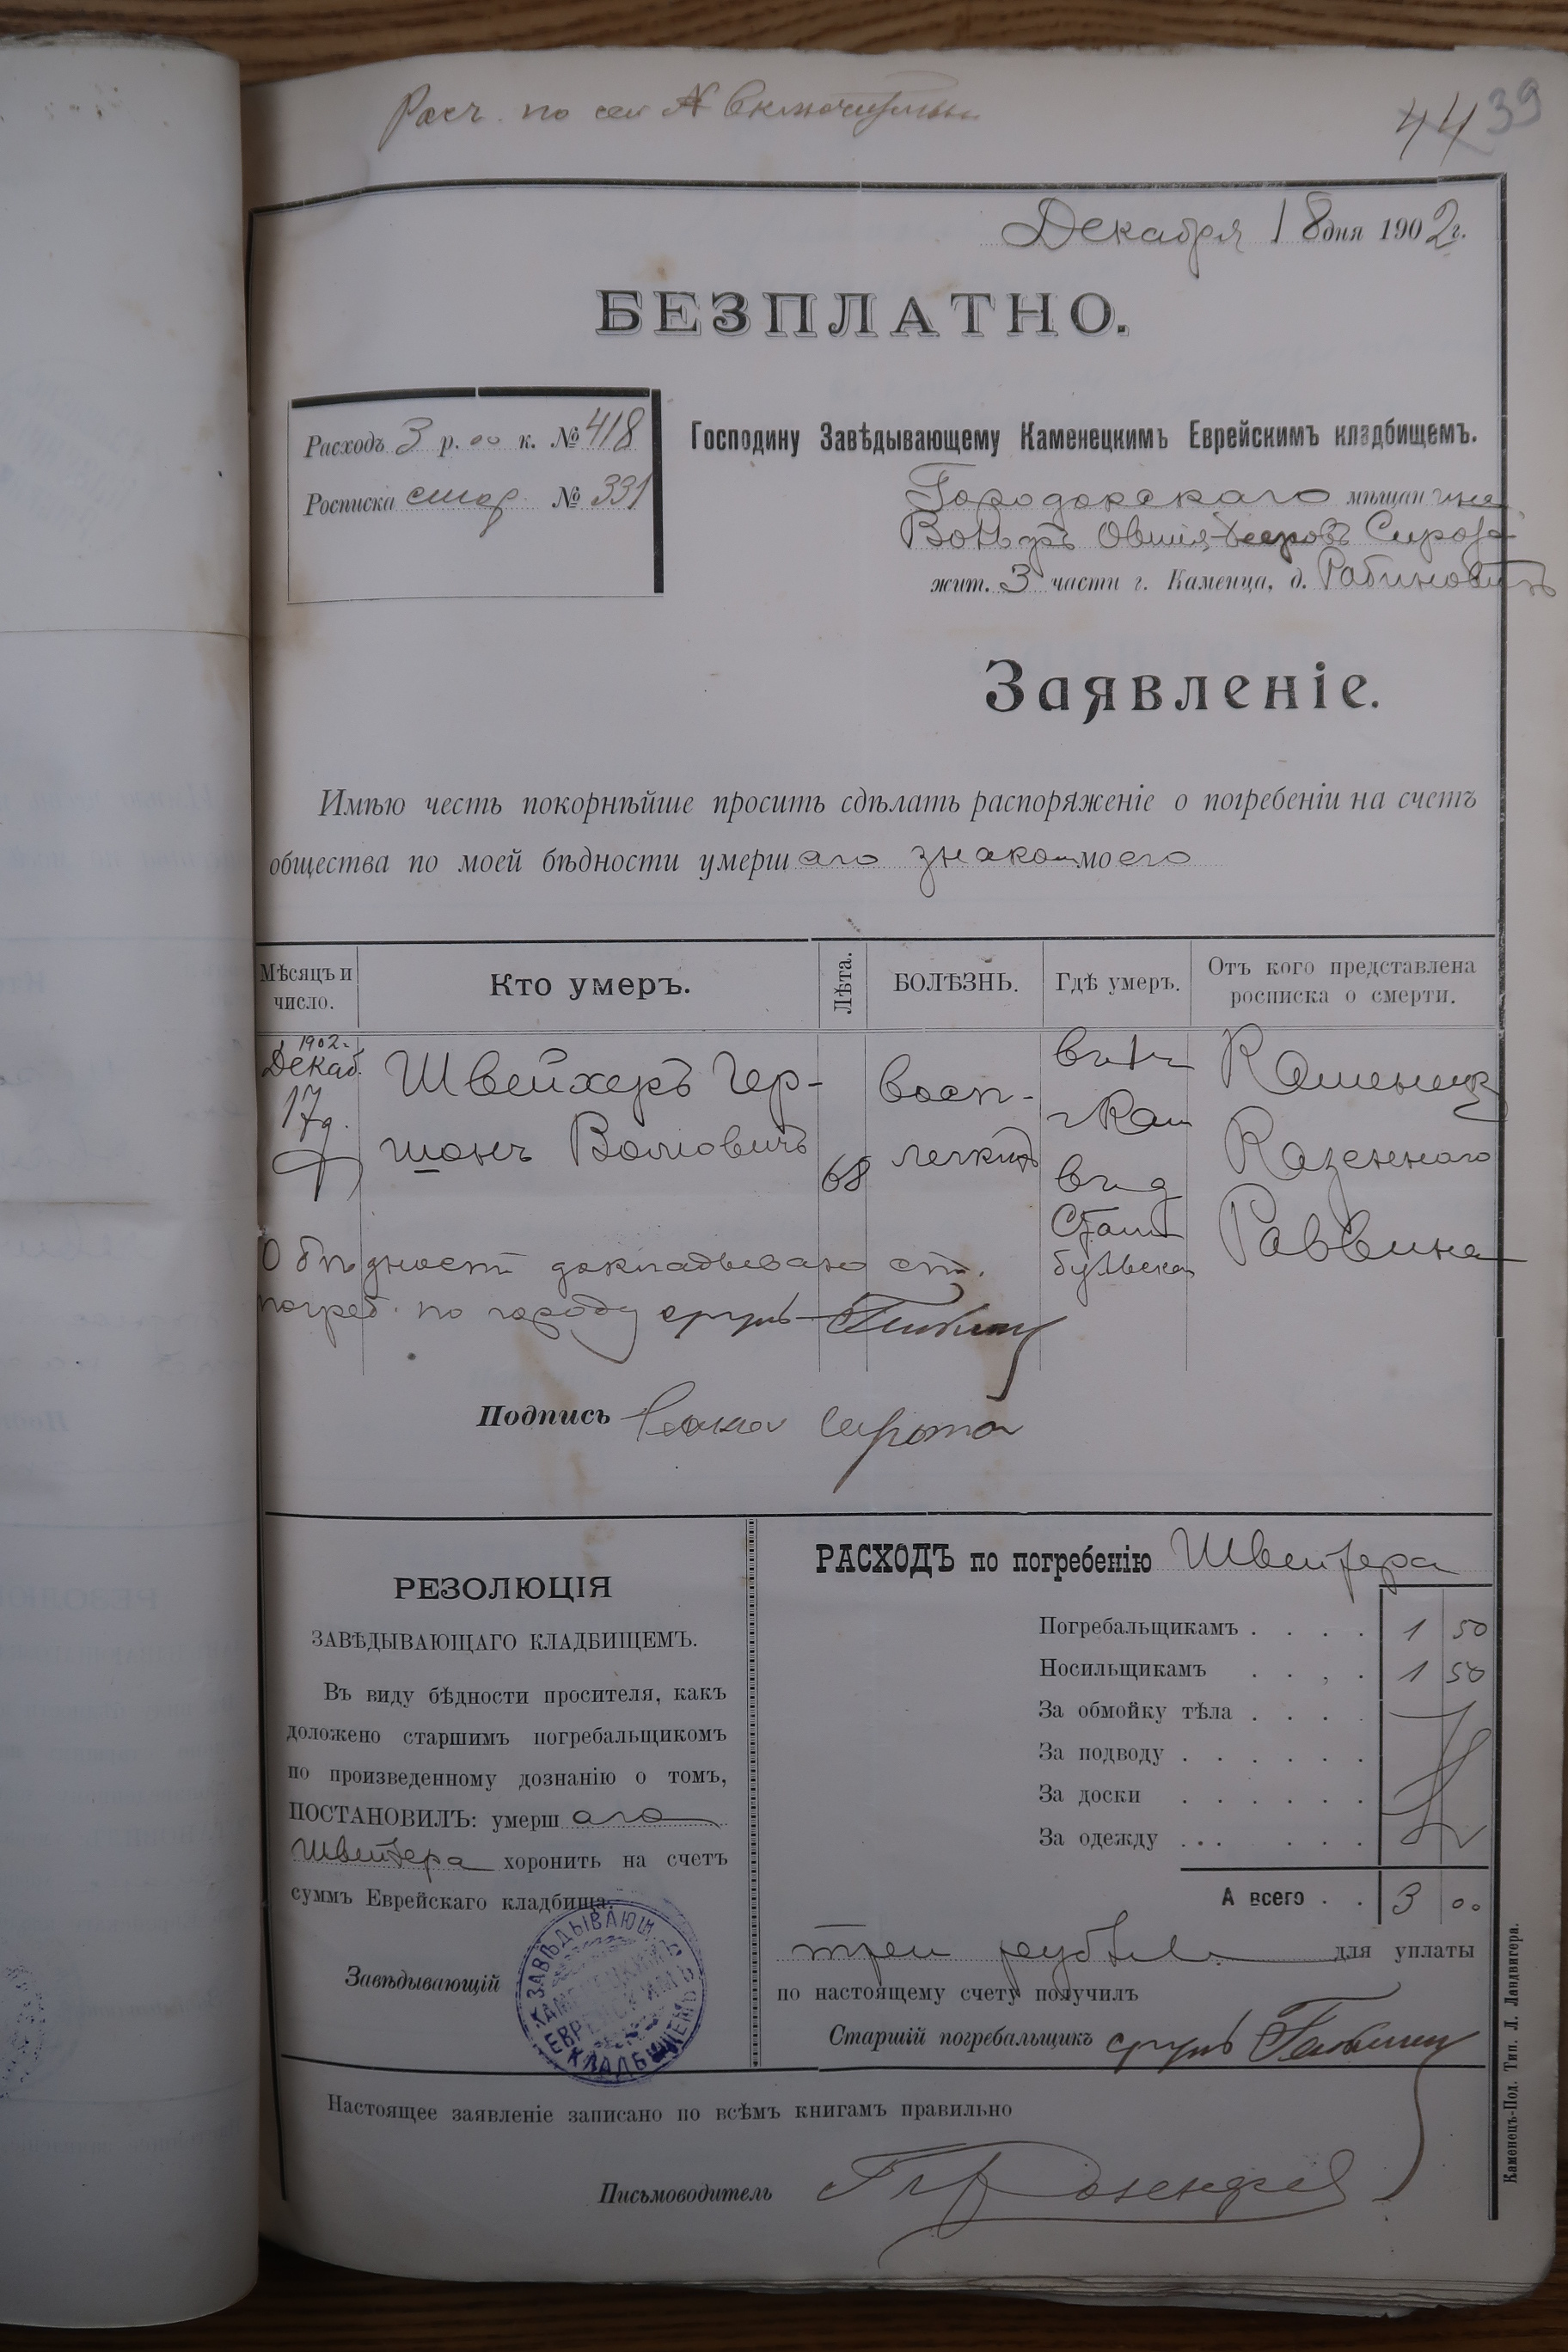 Расч. по сей № включительно
44 39
Декабря 18 дня 1902 г.
БЕЗПЛАТНО.
Расходъ 3 р. 00 к. № 418
Росписка стар. № 331
Господину Завѣдывающему Каменецкимъ Еврейскимъ кладбищемъ.
Городокскаго мѣщанина
Овшія Сирота
жит. 3 части г. Каменца, д. Рабиновичъ
Заявленіе.
Имѣю честь покорнѣйше просить сдѣлать распоряженіе о погребеніи на счетъ
общества по моей бѣдности умершаго знакомо моего
Мѣсяцъ и число.
Кто умеръ.
Лѣта.
БОЛѢЗНЬ.
Гдѣ умеръ.
Отъ кого представлена росписка о смерти.
1902 г.
Декаб.
17 д.
Швейхеръ Гер-
шонъ Волковичъ
68
Восп-
легкихъ
г Кам
в д
Стам
бульская
Каменецк
Казеннаго
Раввина
О бѣдности докладываю ст.
погреб. по городу
Подпись Сирота
РЕЗОЛЮЦІЯ
ЗАВѢДЫВАЮЩАГО КЛАДБИЩЕМЪ.
Въ виду бѣдности просителя, какъ
доложено старшимъ погребальщикомъ
по произведенному дознанію о томъ,
ПОСТАНОВИЛЪ: умершаго
Швейхера хоронить на счетъ
суммъ Еврейскаго кладбища.
Завѣдывающій
ЗАВѢДЫВАЮЩ
КАМЕНЕЦКИМЪ
ЕВРЕЙСКИМЪ
КЛАДБИЩЕМЪ
РАСХОДЪ по погребенію Швейхера
Погребальщикамъ . . . . 1 50
Носильщикамъ . . . . 1 50
За обмойку тѣла . . . .
За подводу . . . . . .
За доски . . . . . .
За одежду . . . . . .
А всего . . 3 00
три рубля для уплаты
по настоящему счету получилъ
Старшій погребальщикъ
Настоящее заявленіе записано по всѣмъ книгамъ правильно
Письмоводитель
Каменецъ-Под. Тип. Л. Ландвигера.